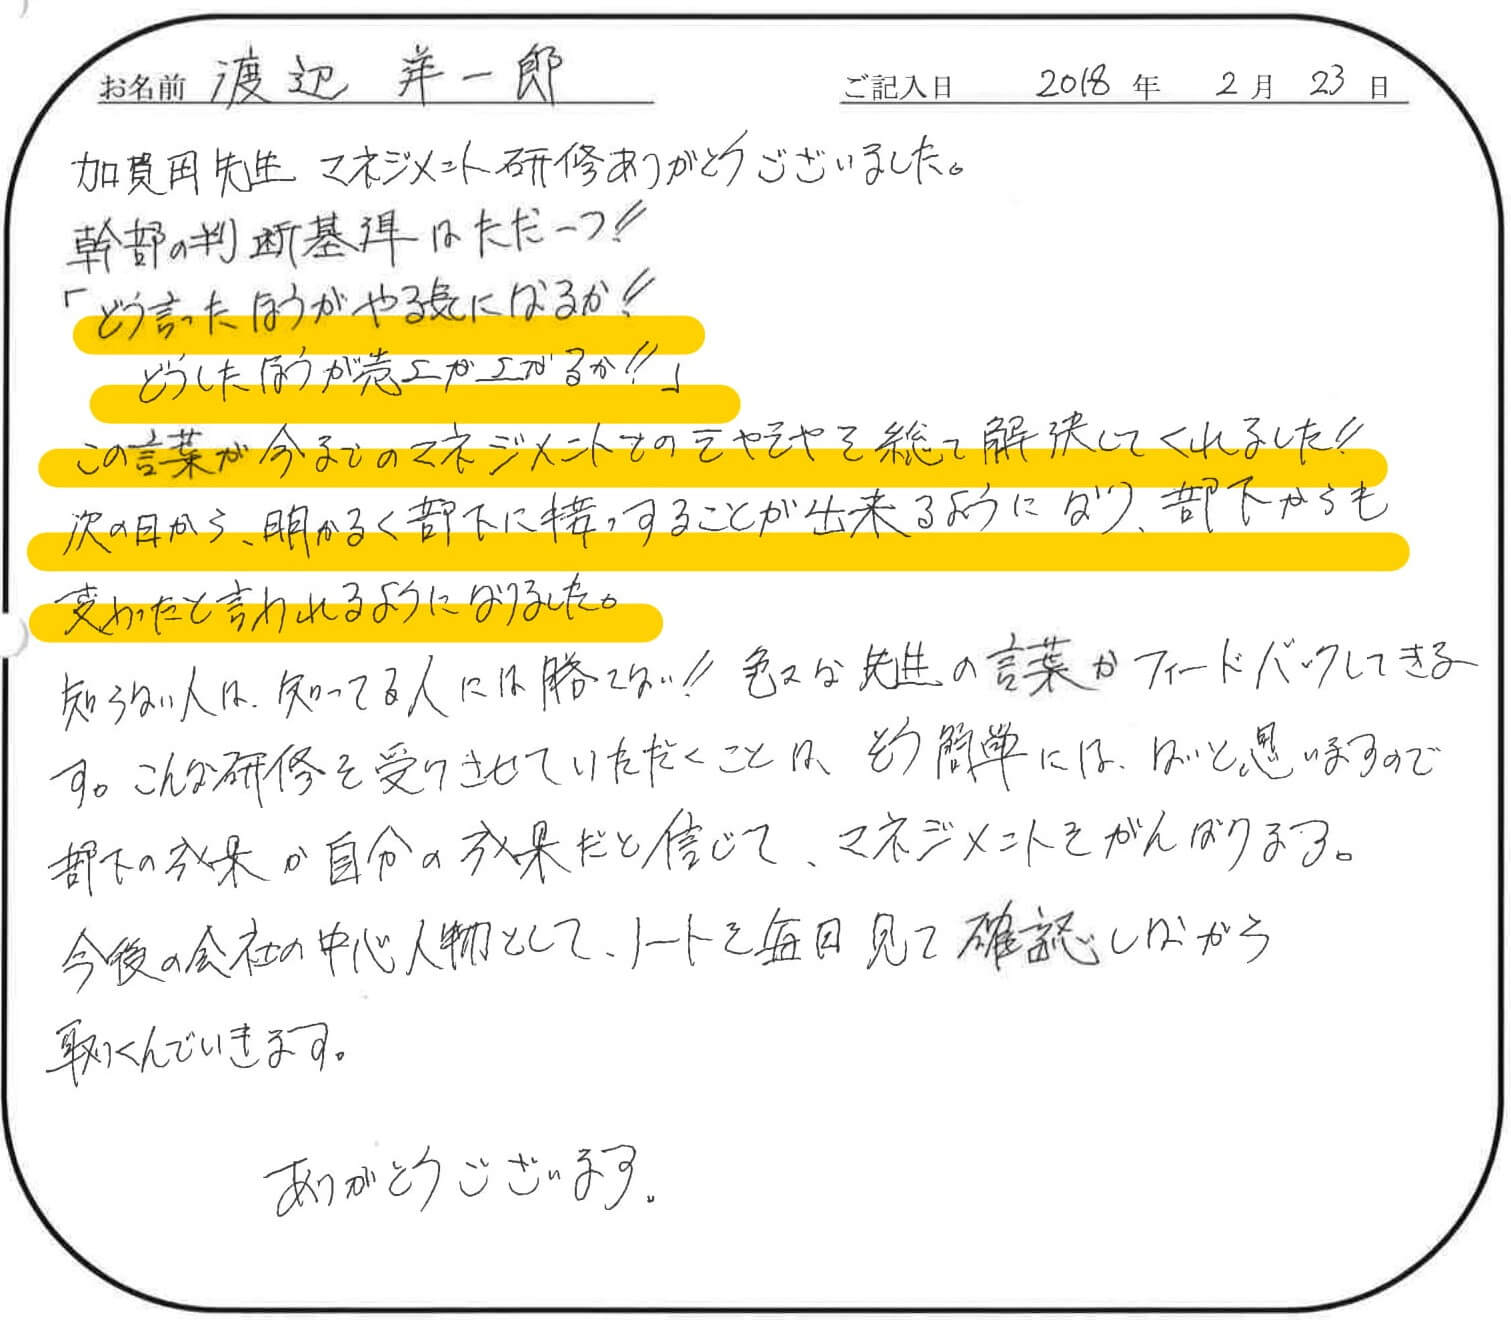 お名前 渡辺 洋一郎 ご記入日 2018年 2月 23日
加賀田先生 マネジメント研修ありがとうございました。
幹部の判断基準はただ一つ!!
「どう言ったほうがやる気になるか!!
どうしたほうが売上が上がるか!!」
この言葉が今までのマネジメントでのモヤモヤを総て解決してくれました!!
次の日から、明かるく部下に接っすることが出来るようになり、部下からも
変わったと言われるようになりました。
知らない人は、知ってる人には勝てない!! 色々な先生の言葉がフィードバックしてきま
す。こんな研修を受けさせていただくことは、そう簡単には、ないと思いますので
部下の成果が自分の成果だと信じて、マネジメントをがんばります。
今後の会社の中心人物として、ノートを毎日見て確認しながら
取りくんでいきます。
ありがとうございます。